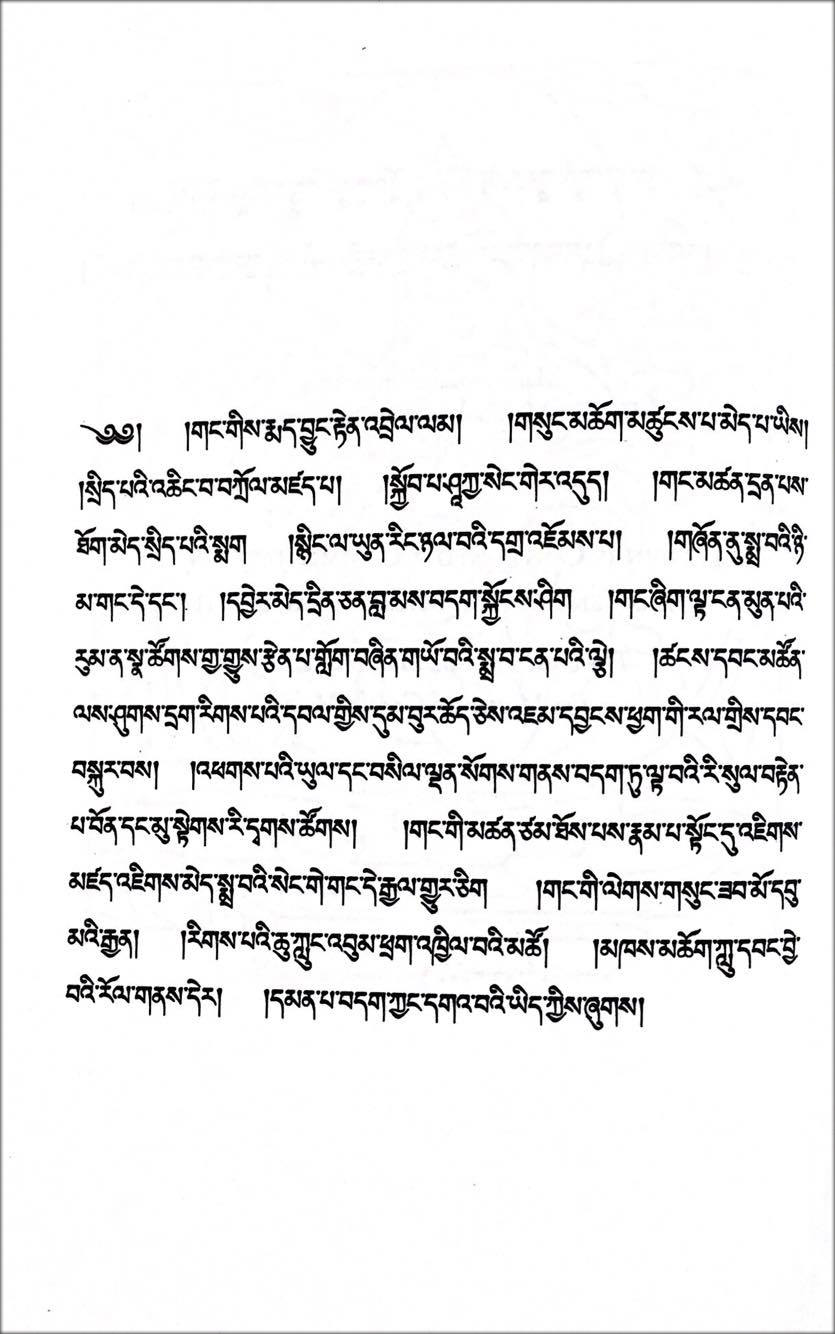 ༄༅། །གང་གིས་རྨད་བྱུང་རྟེན་འབྲེལ་ལམ། །གསུང་མཆོག་མཚུངས་པ་མེད་པ་ཡིས།
།སྲིད་པའི་འཆིང་བ་བཀྲོལ་མཛད་པ། །སྐྱོབ་པ་ཤཱཀྱ་སེང་གེར་འདུད། །གང་མཚན་དྲན་པས་
ཐོག་མེད་སྲིད་པའི་སྨག །སྙིང་ལ་ཡུན་རིང་ཉལ་བའི་དགྲ་འཇོམས་པ། །གཞོན་ནུ་སྨྲ་བའི་ཉི་
མ་གང་དེ་དང་། །དབྱེར་མེད་དྲིན་ཅན་བླ་མས་བདག་སྐྱོངས་ཤིག །གང་ཞིག་ལྟ་ངན་མུན་པའི་
རུམ་ན་སྣ་ཚོགས་གྱ་གྱུས་རྩེན་པ་གློག་བཞིན་གཡོ་བའི་སྨྲ་བ་ངན་པའི་ལྕེ། །ཚངས་དབང་མཚོན་
ལས་ཤུགས་དྲག་རིགས་པའི་དབལ་གྱིས་དུམ་བུར་ཆོད་ཅེས་འཇམ་དབྱངས་ཕྱག་གི་རལ་གྲིས་དབང་
བསྐུར་བས། །འཕགས་པའི་ཡུལ་དང་བསིལ་ལྡན་སོགས་གནས་བདག་ཏུ་ལྟ་བའི་རི་སུལ་བརྟེན་
པ་བོན་དང་མུ་སྟེགས་རི་དྭགས་ཚོགས། །གང་གི་མཚན་ཙམ་ཐོས་པས་རྣམ་པ་སྟོང་དུ་འཇིགས་
མཛད་འཇིགས་མེད་སྨྲ་བའི་སེང་གེ་གང་དེ་རྒྱལ་གྱུར་ཅིག །གང་གི་ལེགས་གསུང་ཟབ་མོ་དབུ་
མའི་རྒྱན། །རིགས་པའི་ཆུ་ཀླུང་འབུམ་ཕྲག་འཁྱིལ་བའི་མཚོ། །མཁས་མཆོག་ཀླུ་དབང་བྱེ་
བའི་རོལ་གནས་དེར། །དམན་པ་བདག་ཀྱང་དགའ་བའི་ཡིད་ཀྱིས་ཞུགས།